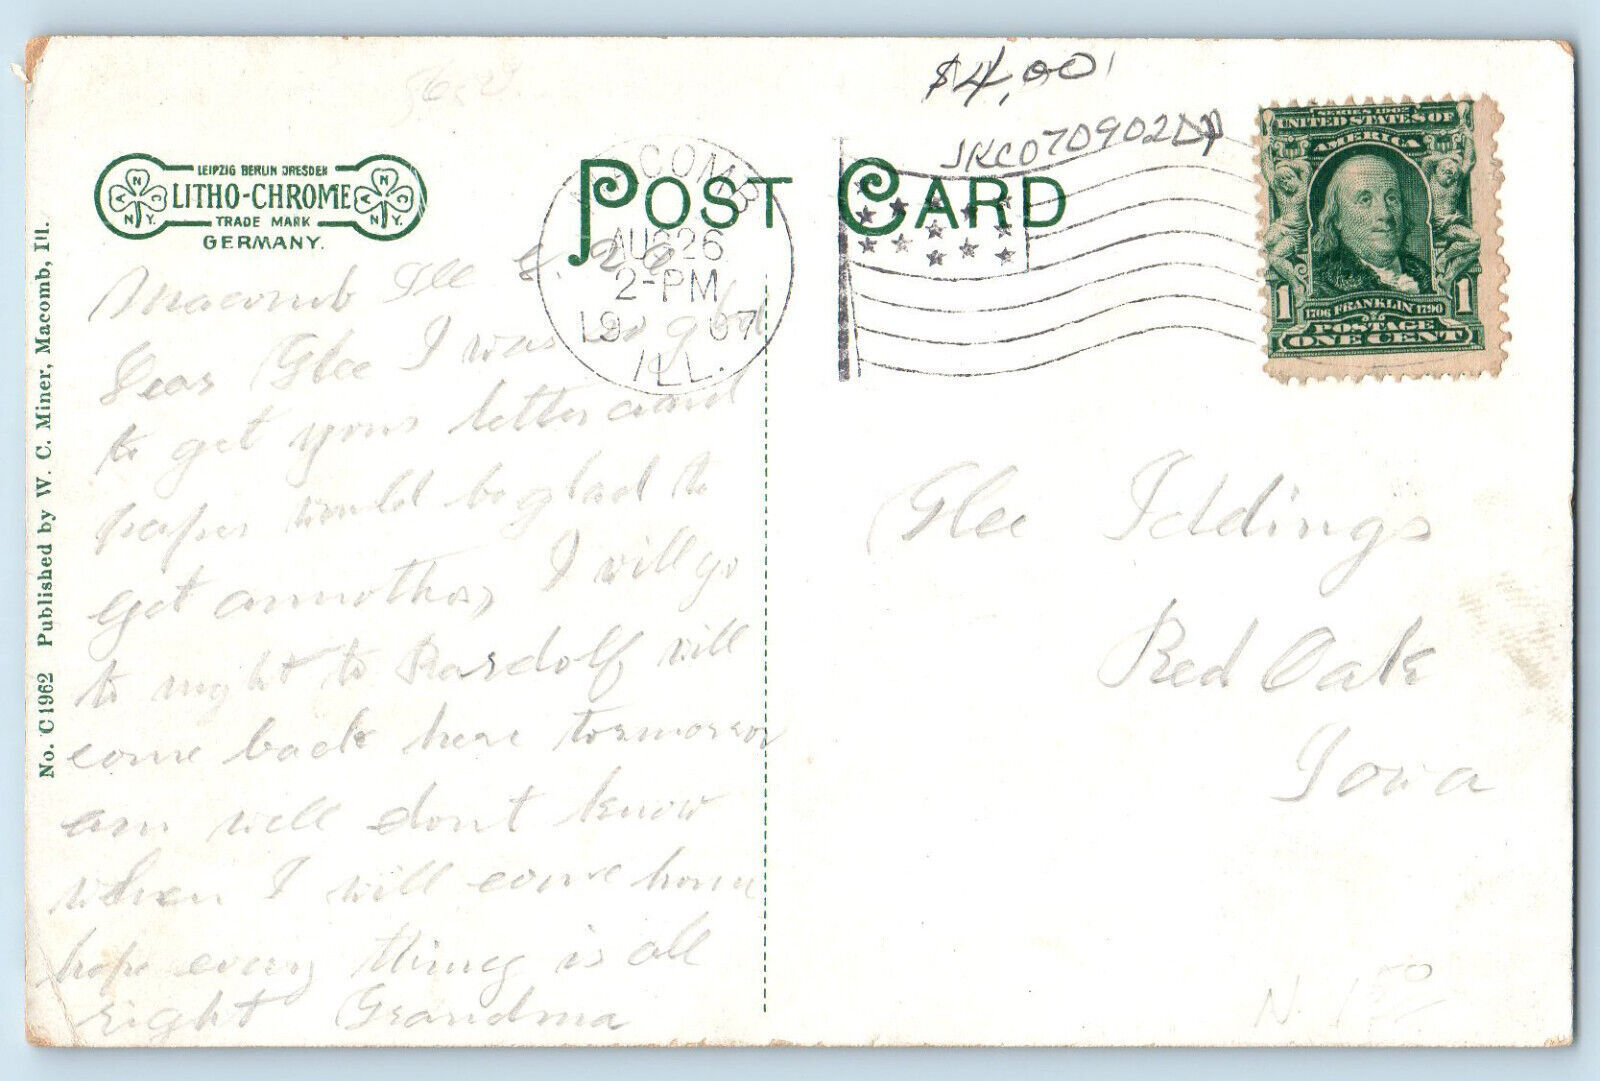 $4.00
JKC070902DP
LEIPZIG BERLIN DRESDEN
LITHO-CHROME
TRADE MARK
GERMANY.
N A C N.Y.
N A C N.Y.
POST CARD
MACOMB
AUG 26
2-PM
1907
ILL.
SERIES 1902
UNITED STATES OF
AMERICA
1 1706 FRANKLIN 1790 1
POSTAGE
ONE CENT
No. C1962 Published by W. C. Miner, Macomb, Ill.
Macomb Ill
Dear Glee I was so glad
to get your letter and
paper would be glad to
get annother I will go
to night to Bardolf will
come back here tormorror
am well dont know
when I will come home
hope every thing is all
right Grandma
Glee Iddings
Red Oak
Iowa